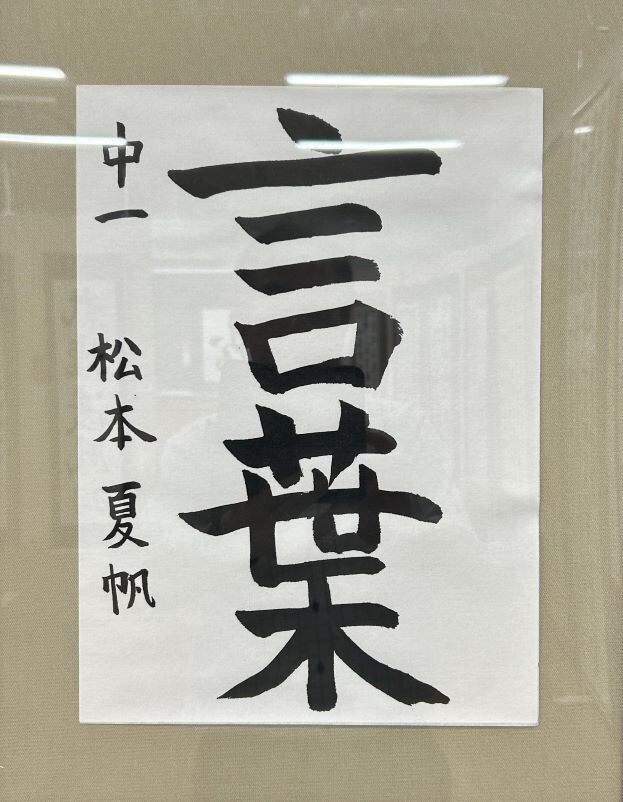 言葉
中一 松本夏帆